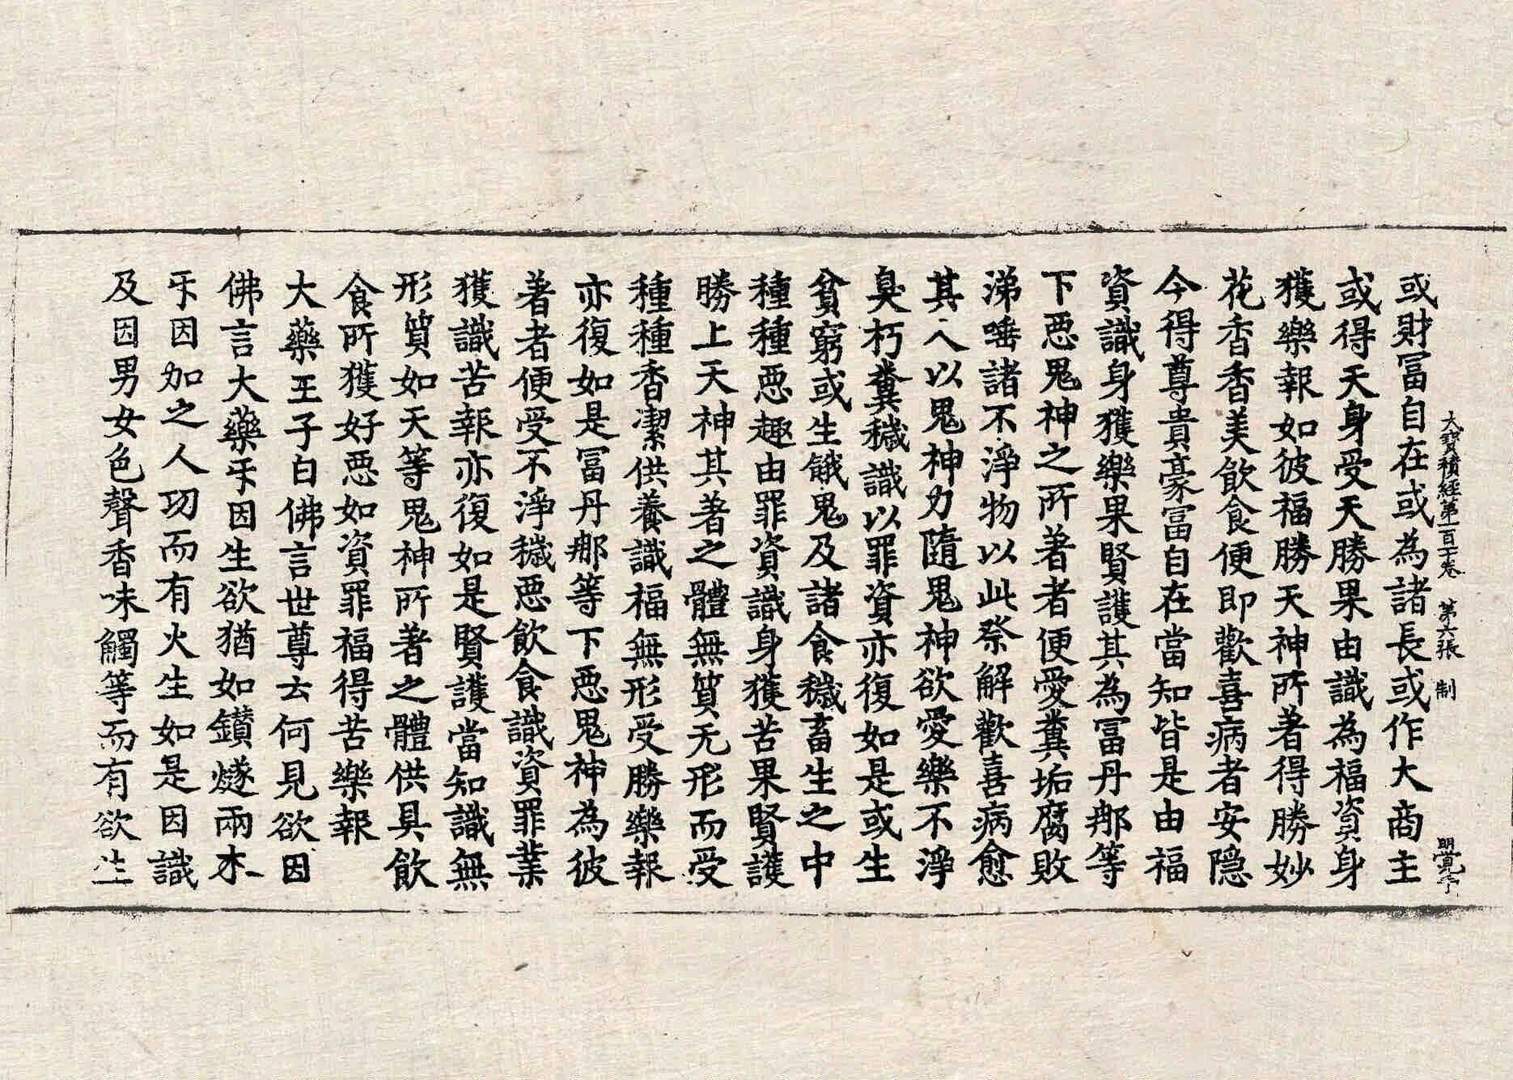 大寶積經第一百十卷 第六張 制
或財冨自在或為諸長或作大商主
或得天身受天勝果由識為福資身
獲樂報如彼福勝天神所著得勝妙
花香香美飲食便即歡喜病者安隠
今得尊貴豪冨自在當知皆是由福
資識身獲樂果賢護其為冨丹那等
下惡鬼神之所著者便愛糞垢腐敗
涕唾諸不淨物以此祭解歡喜病愈
其人以鬼神力隨鬼神欲愛樂不淨
臭朽糞穢識以罪資亦復如是或生
貧窮或生餓鬼及諸食穢畜生之中
種種惡趣由罪資識身獲苦果賢護
勝上天神其著之體無質无形而受
種種香潔供養識福無形受勝樂報
亦復如是冨丹那等下惡鬼神為彼
著者便受不淨穢惡飲食識資罪業
獲識苦報亦復如是賢護當知識無
形質如天等鬼神所著之體供具飲
食所獲好惡如資罪福得苦樂報
大藥王子白佛言世尊云何見欲因
佛言大藥㸦因生欲猶如鑽燧兩木
㸦因加之人功而有火生如是因識
及因男女色聲香味觸等而有欲生